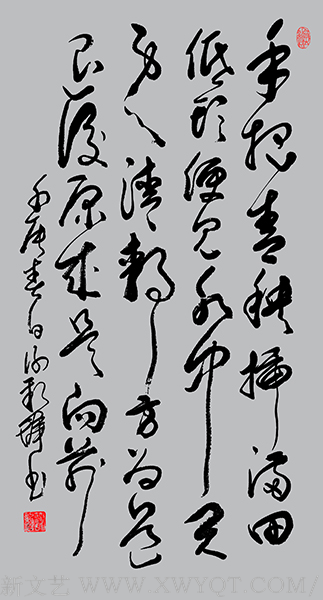 手把青秧插满田
低头便见水中天
身心清静方为道
退後原来是向前
春日书
新文艺 WWW.XWYQT.COM/